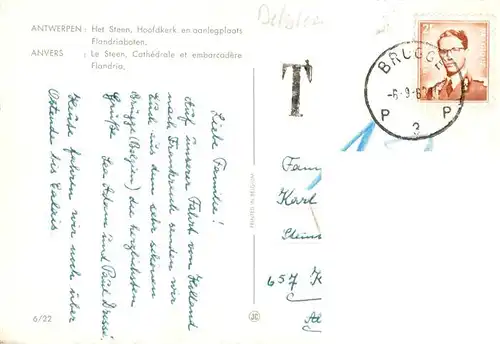 ANTWERPEN : Het Steen, Hoofdkerk en aanlegplaats
Flandriaboten.
ANVERS : Le Steen, Cathédrale et embarcadère
Flandria.
Liebe Familie!
Auf unserer Fahrt von Holland
nach Frankreich senden wir
Euch aus dem sehr schönen
Brügge (Belgien) die herzlichsten
Grüße Lea Adam und Paul
Heute fahren wir noch über
Ostende bis Calais
6/22
PRINTED IN BELGIUM
T
BRUGGE
-6-9-6
P P
3
2F
Fam
Karl
Stein
657 K